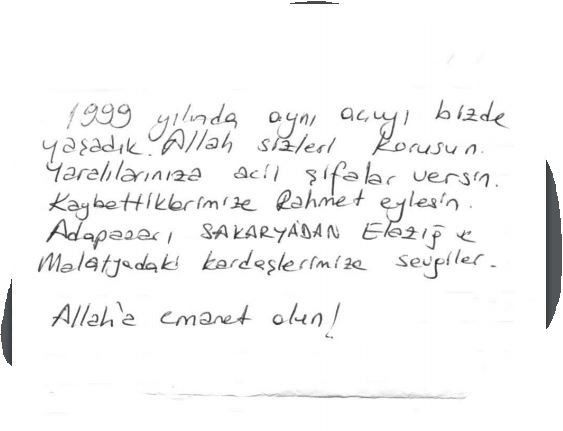 1999 yılında aynı acıyı bizde
yaşadık. Allah sizleri korusun.
Yaralılarınıza acil şifalar versin.
Kaybettiklerimize Rahmet eylesin.
Adapazarı SAKARYADAN Elazığ ve
Malatyadaki kardeşlerimize sevgiler.
Allah'a emanet olun!